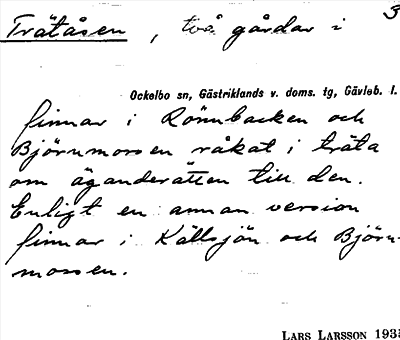 3
Trätåsen, två gårdar i
Ockelbo sn, Gästriklands v. doms. tg, Gävleb. l.
finnar i Rönnbacken och
Björnmossen råkat i träta
om äganderätten till den.
Enligt en annan version
finnar i Källsjön och Björn-
mossen.
LARS LARSSON 1935